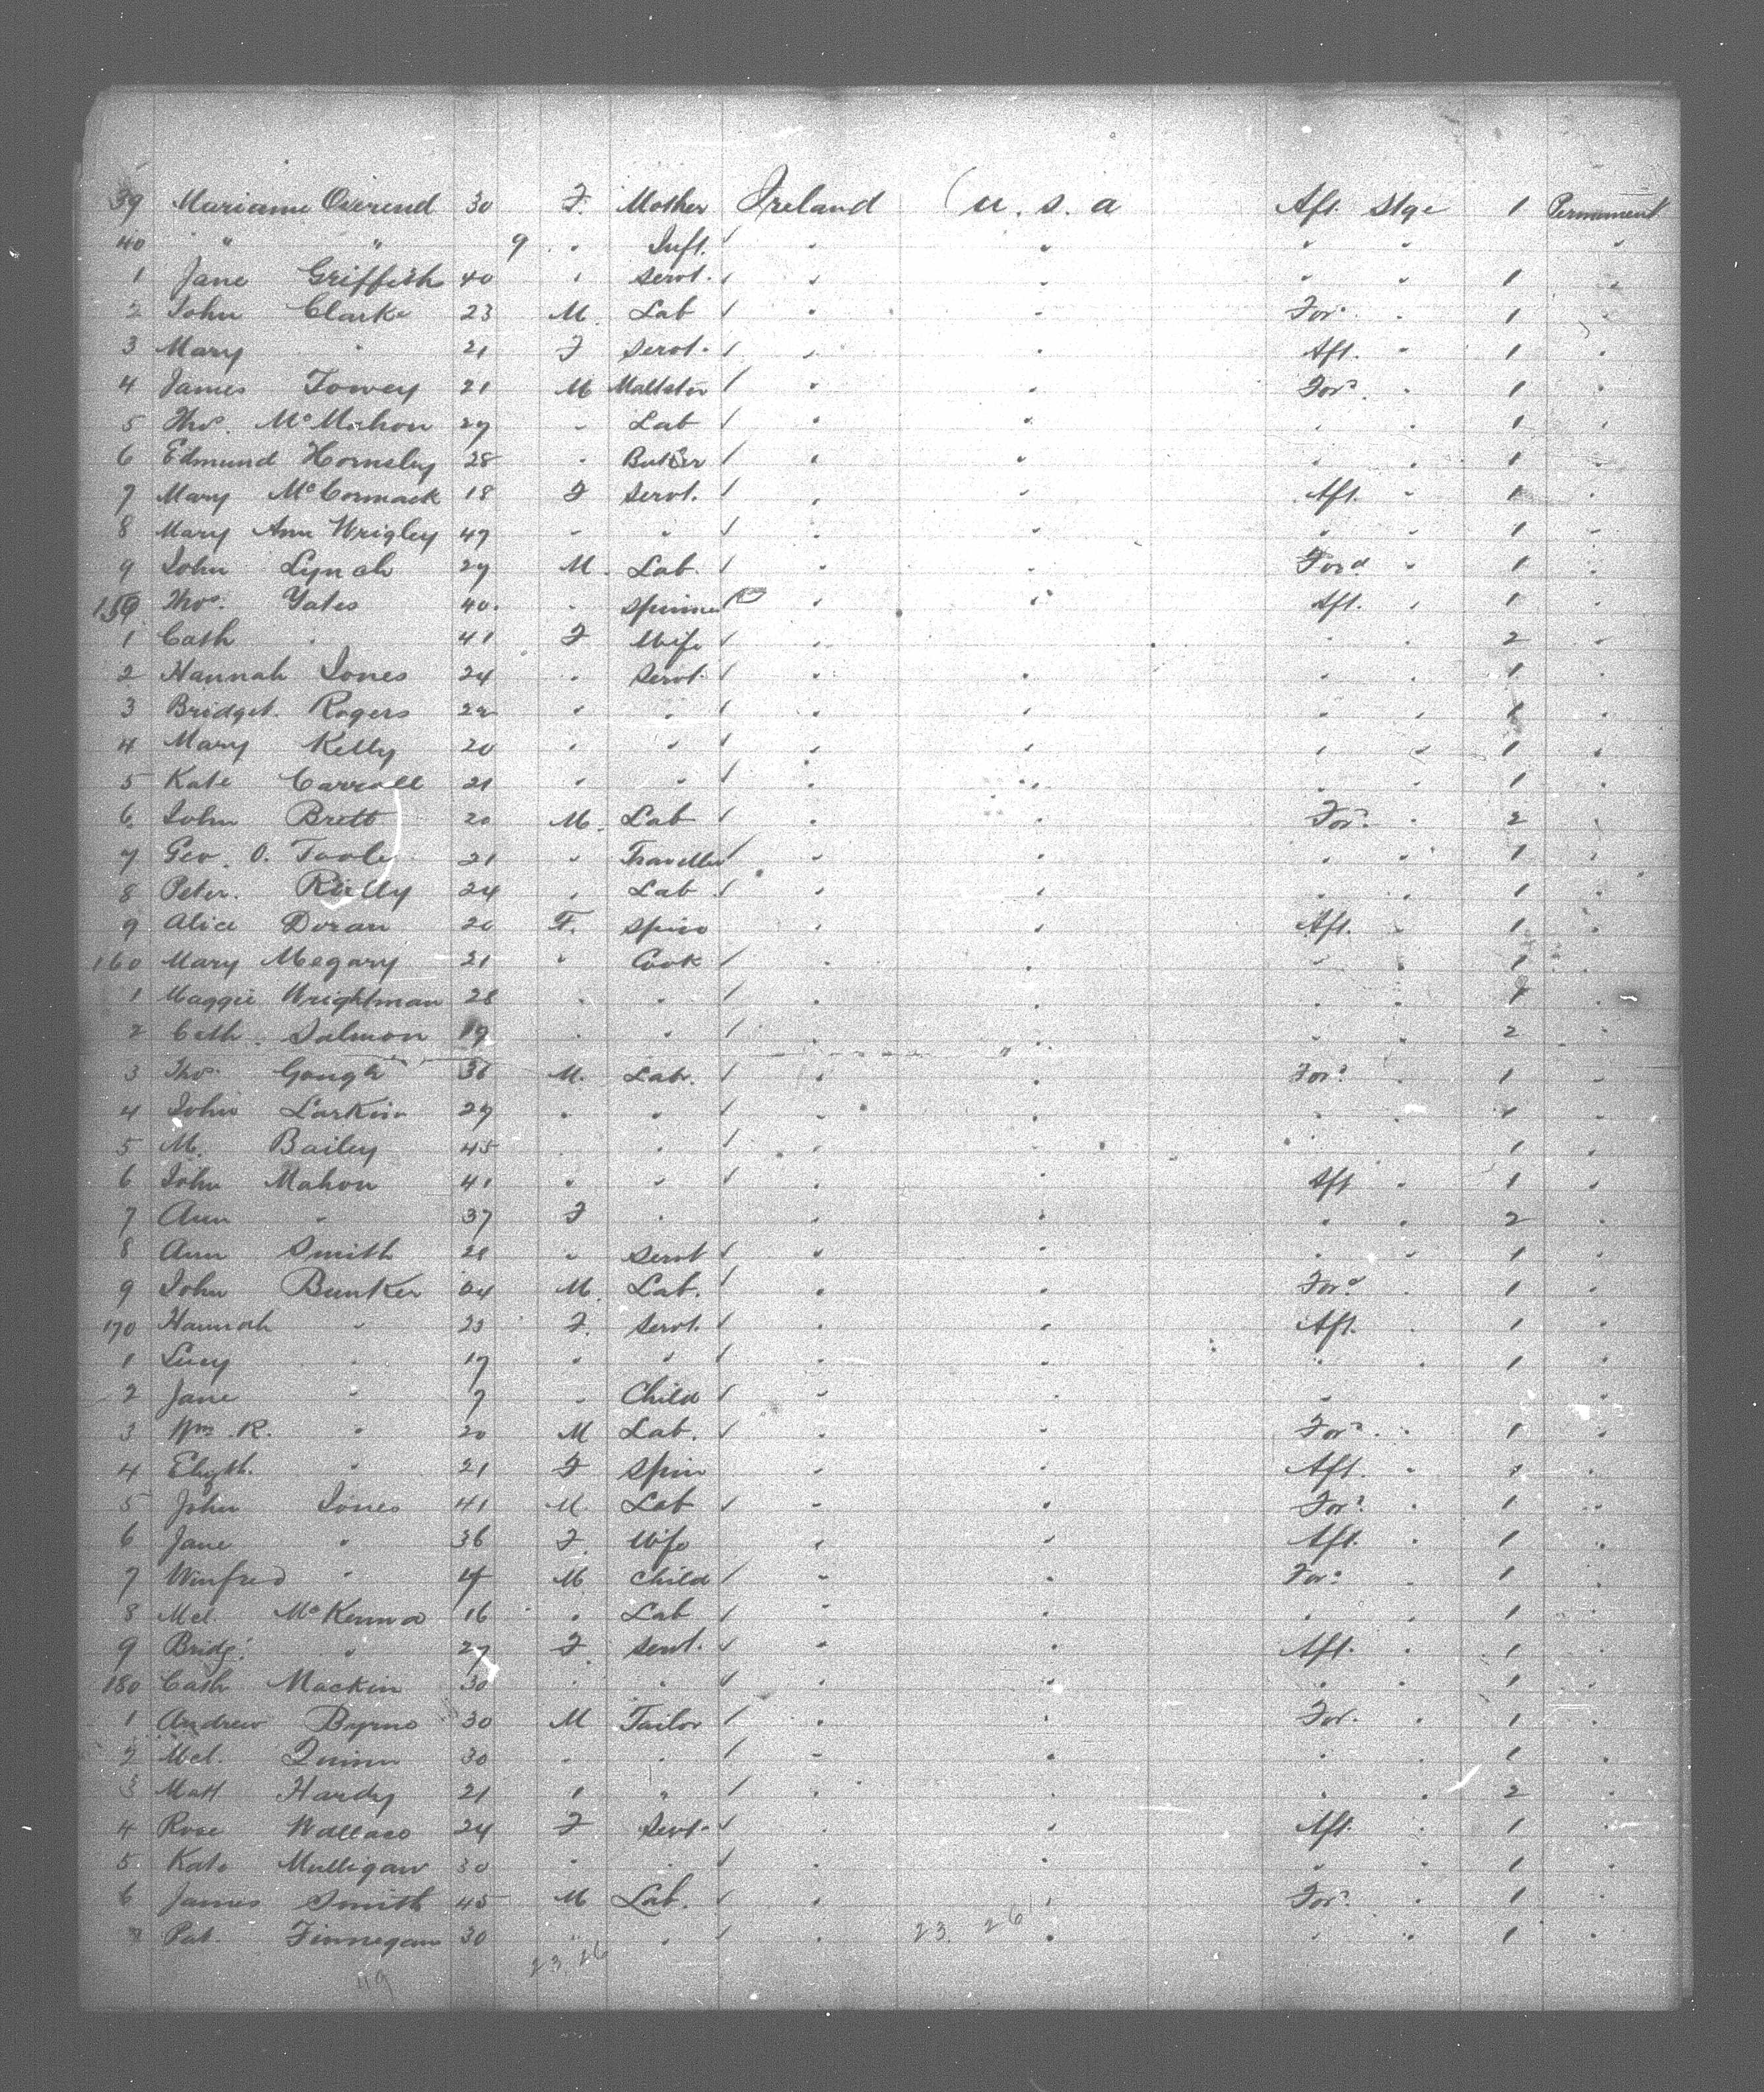 39 Mariame Overend 30 F. Mother Ireland (U.S.a Aft. Stge 1 Permament
40 " " 9 " Inft. " " " " "
1 Jane Griffith 40 " Servt. " " " " 1 "
2 John Clarke 23 M. Lab " " For. " 1 "
3 Mary " 21 F Servt. " " Aft. " 1 "
4 James Towey 21 M Maltster " " For. " 1 "
5 Thos. McMahon 29 " Lab " " " " 1 "
6 Edmund Hornsby 28 " Butcher " " " " 1 "
7 Mary McCormack 18 F Servt. " " Aft. " 1 "
8 Mary Ann Wrigley 47 " " " " " " 1 "
9 John Lynch 29 M. Lab. " " Ford " 1 "
150 Thos. Yates 40. " Spinner " " Aft. " 1 "
1 Cath " 41 F Wife " " " " 2 "
2 Hannah Jones 24 " Servt. " " " " 1 "
3 Bridget. Rogers 22 " " " " " " 1 "
4 Mary Kelly 20 " " " " " " 1 "
5 Kate Carroll 21 " " " " " " 1 "
6. John Brett 20 M. Lab " " For. " 2 "
7 Geo. O. Toole 21 " Traveller " " " " 1 "
8 Peter. Reilly 24 " Lab " " " " 1 "
9 Alice Doran 20 F. Spin " " Aft. " 1 "
160 Mary Megary 21 " Cook " " " " 1 "
1 Maggie Wrightman 28 " " " " " " 1 "
2 Cath. Salmon 19 " " " " " " 2 "
3 Thos. Gough 36 M. Lab. " " For. " 1 "
4 John Larkin 29 " " " " " " 1 "
5 M. Bailey 45 " " " " " " 1 "
6 John Mahon 41 " " " " Aft " 1 "
7 Ann " 37 F " " " " " 2 "
8 Ann Smith 21 " Servt " " " " 1 "
9 John Bunker 24 M. Lab. " " For. " 1 "
170 Hannah " 23 F. Servt. " " Aft. " 1 "
1 Lucy " 17 " " " " " " 1 "
2 Jane " 7 " Child " " " "
3 Wm. R. " 20 M Lab. " " For. " 1 "
4 Elizth. " 21 F Spin " " Aft. " 1 "
5 John Jones 41 M. Lab " " For. " 1 "
6 Jane " 36 F. Wife " " Aft. " 1 "
7 Winfred " 4 M Child " " For. " 1 "
8 Mcl. McKenna 16 " Lab " " " " 1 "
9 Bridgt. " 27 F. Servt. " " Aft. " 1 "
180 Cath Mackin 30 " " " " " " 1 "
1 Andrew Byrne 30 M Tailor " " For. " 1 "
2 Mcl. Quinn 30 " " " " " " 1 "
3 Matt Hardy 21 " " " " " " 2 "
4 Rose Wallace 24 F Servt. " " Aft. " 1 "
5. Kate Mulligan 30 " " " " " " 1 "
6 James Smith 45 M Lab. " " For. " 1 "
7 Pat. Finnegan 30 " " " " " " 1 "
23. 26
23. 26
49